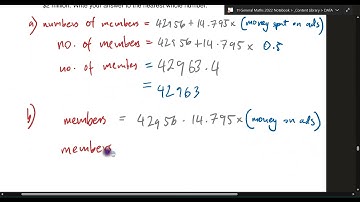 $2 million. Write your answer to the nearest whole number.
11 General Maths 2022 Notebook > _Content Library > DATA
a) numbers of members = 42956 + 14.795 x (money spent on ads)
no. of members = 42956 + 14.795 x 0.5
no. of members = 42963.4
= 42963
b) members = 42956 - 14.795 x (money on ads)
members